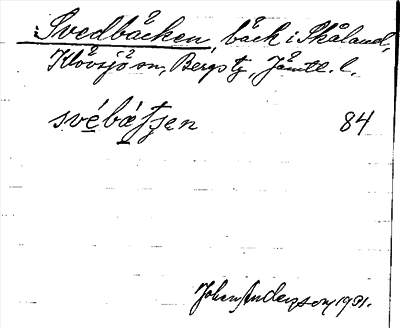 Svedbäcken, bäck i Skåland,
Klövsjö sn, Bergs tg, Jämtl. l.
svébæʃʒen 84
Johan Anderson 1931.